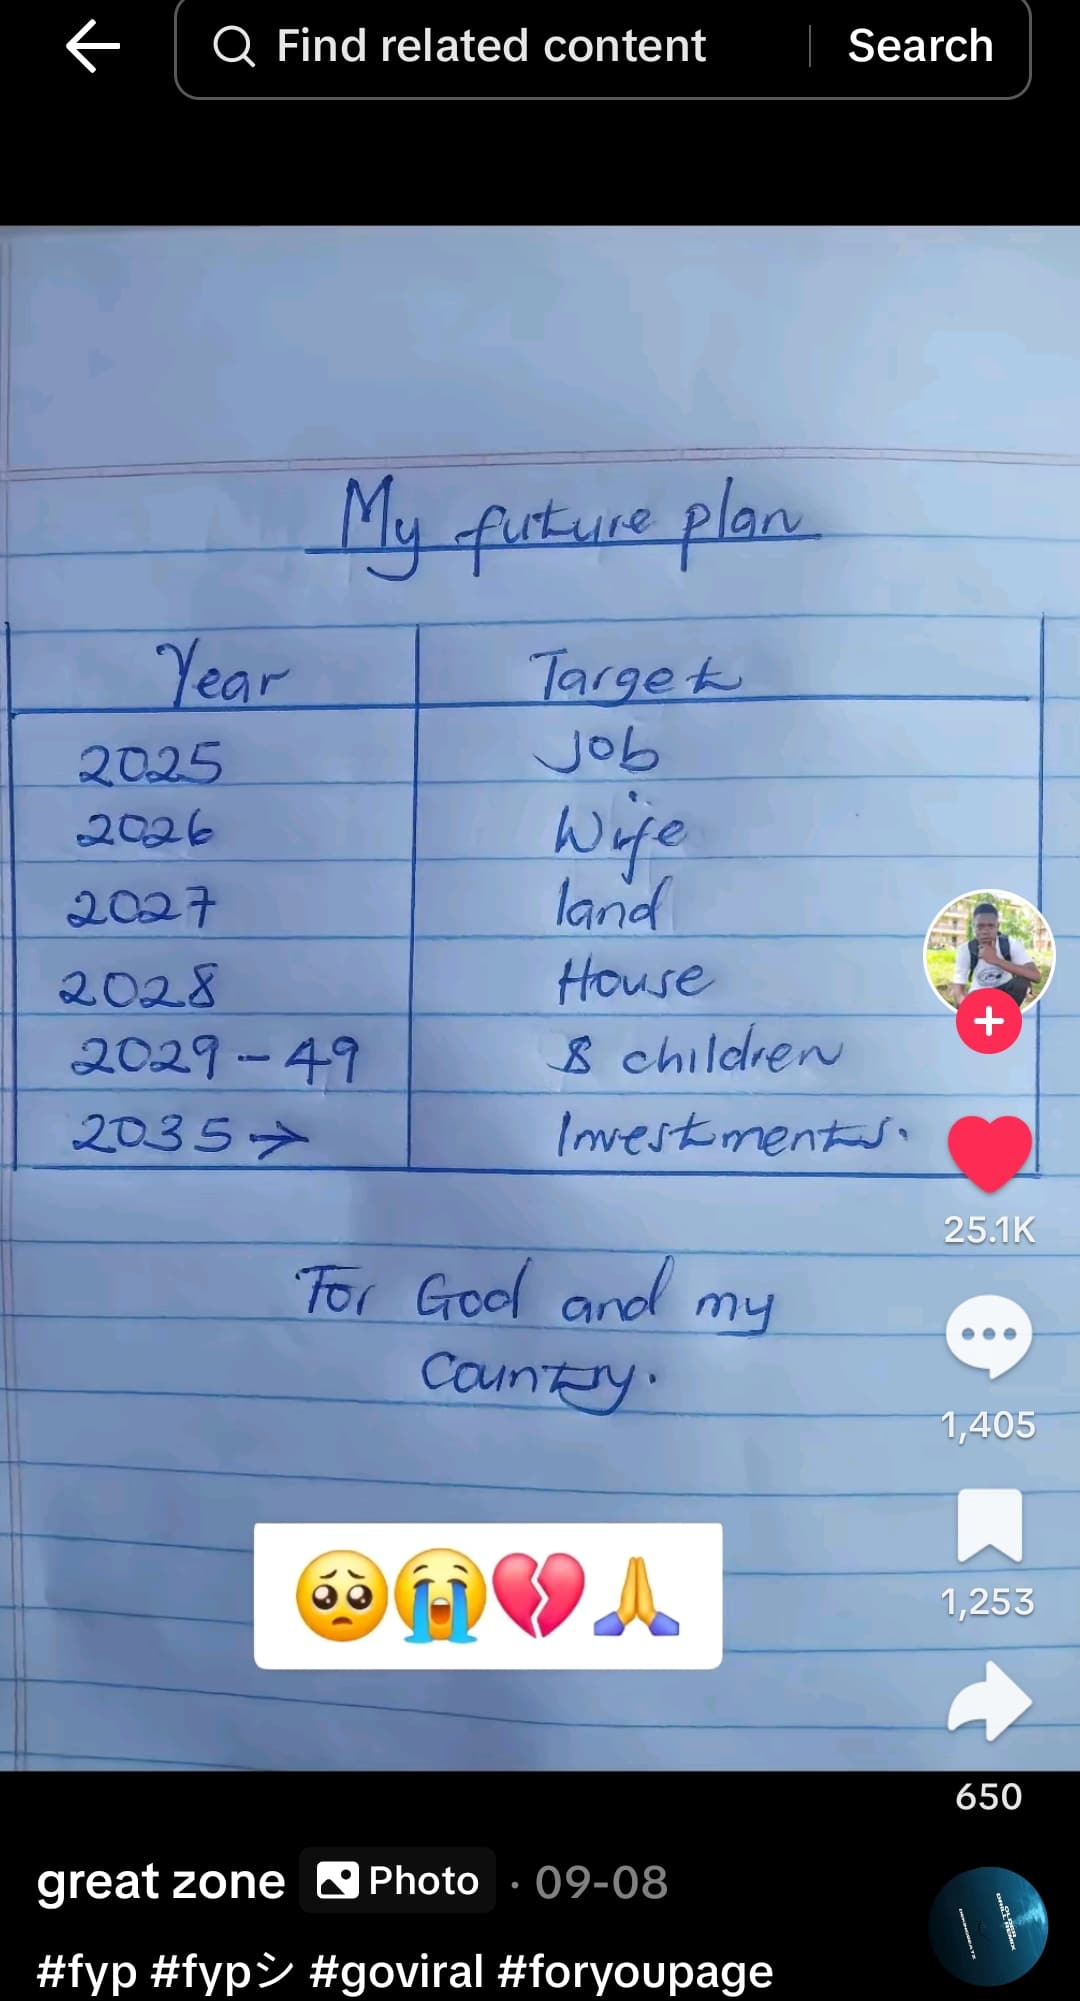 Find related content
Search
My future plan
Year Target
2025 Job
2026 Wife
2027 land
2028 House
2029-49 8 children
2035→ Investments.
For God and my
Country.
25.1K
1,405
1,253
650
great zone Photo · 09-08
#fyp #fypシ #goviral #foryoupage